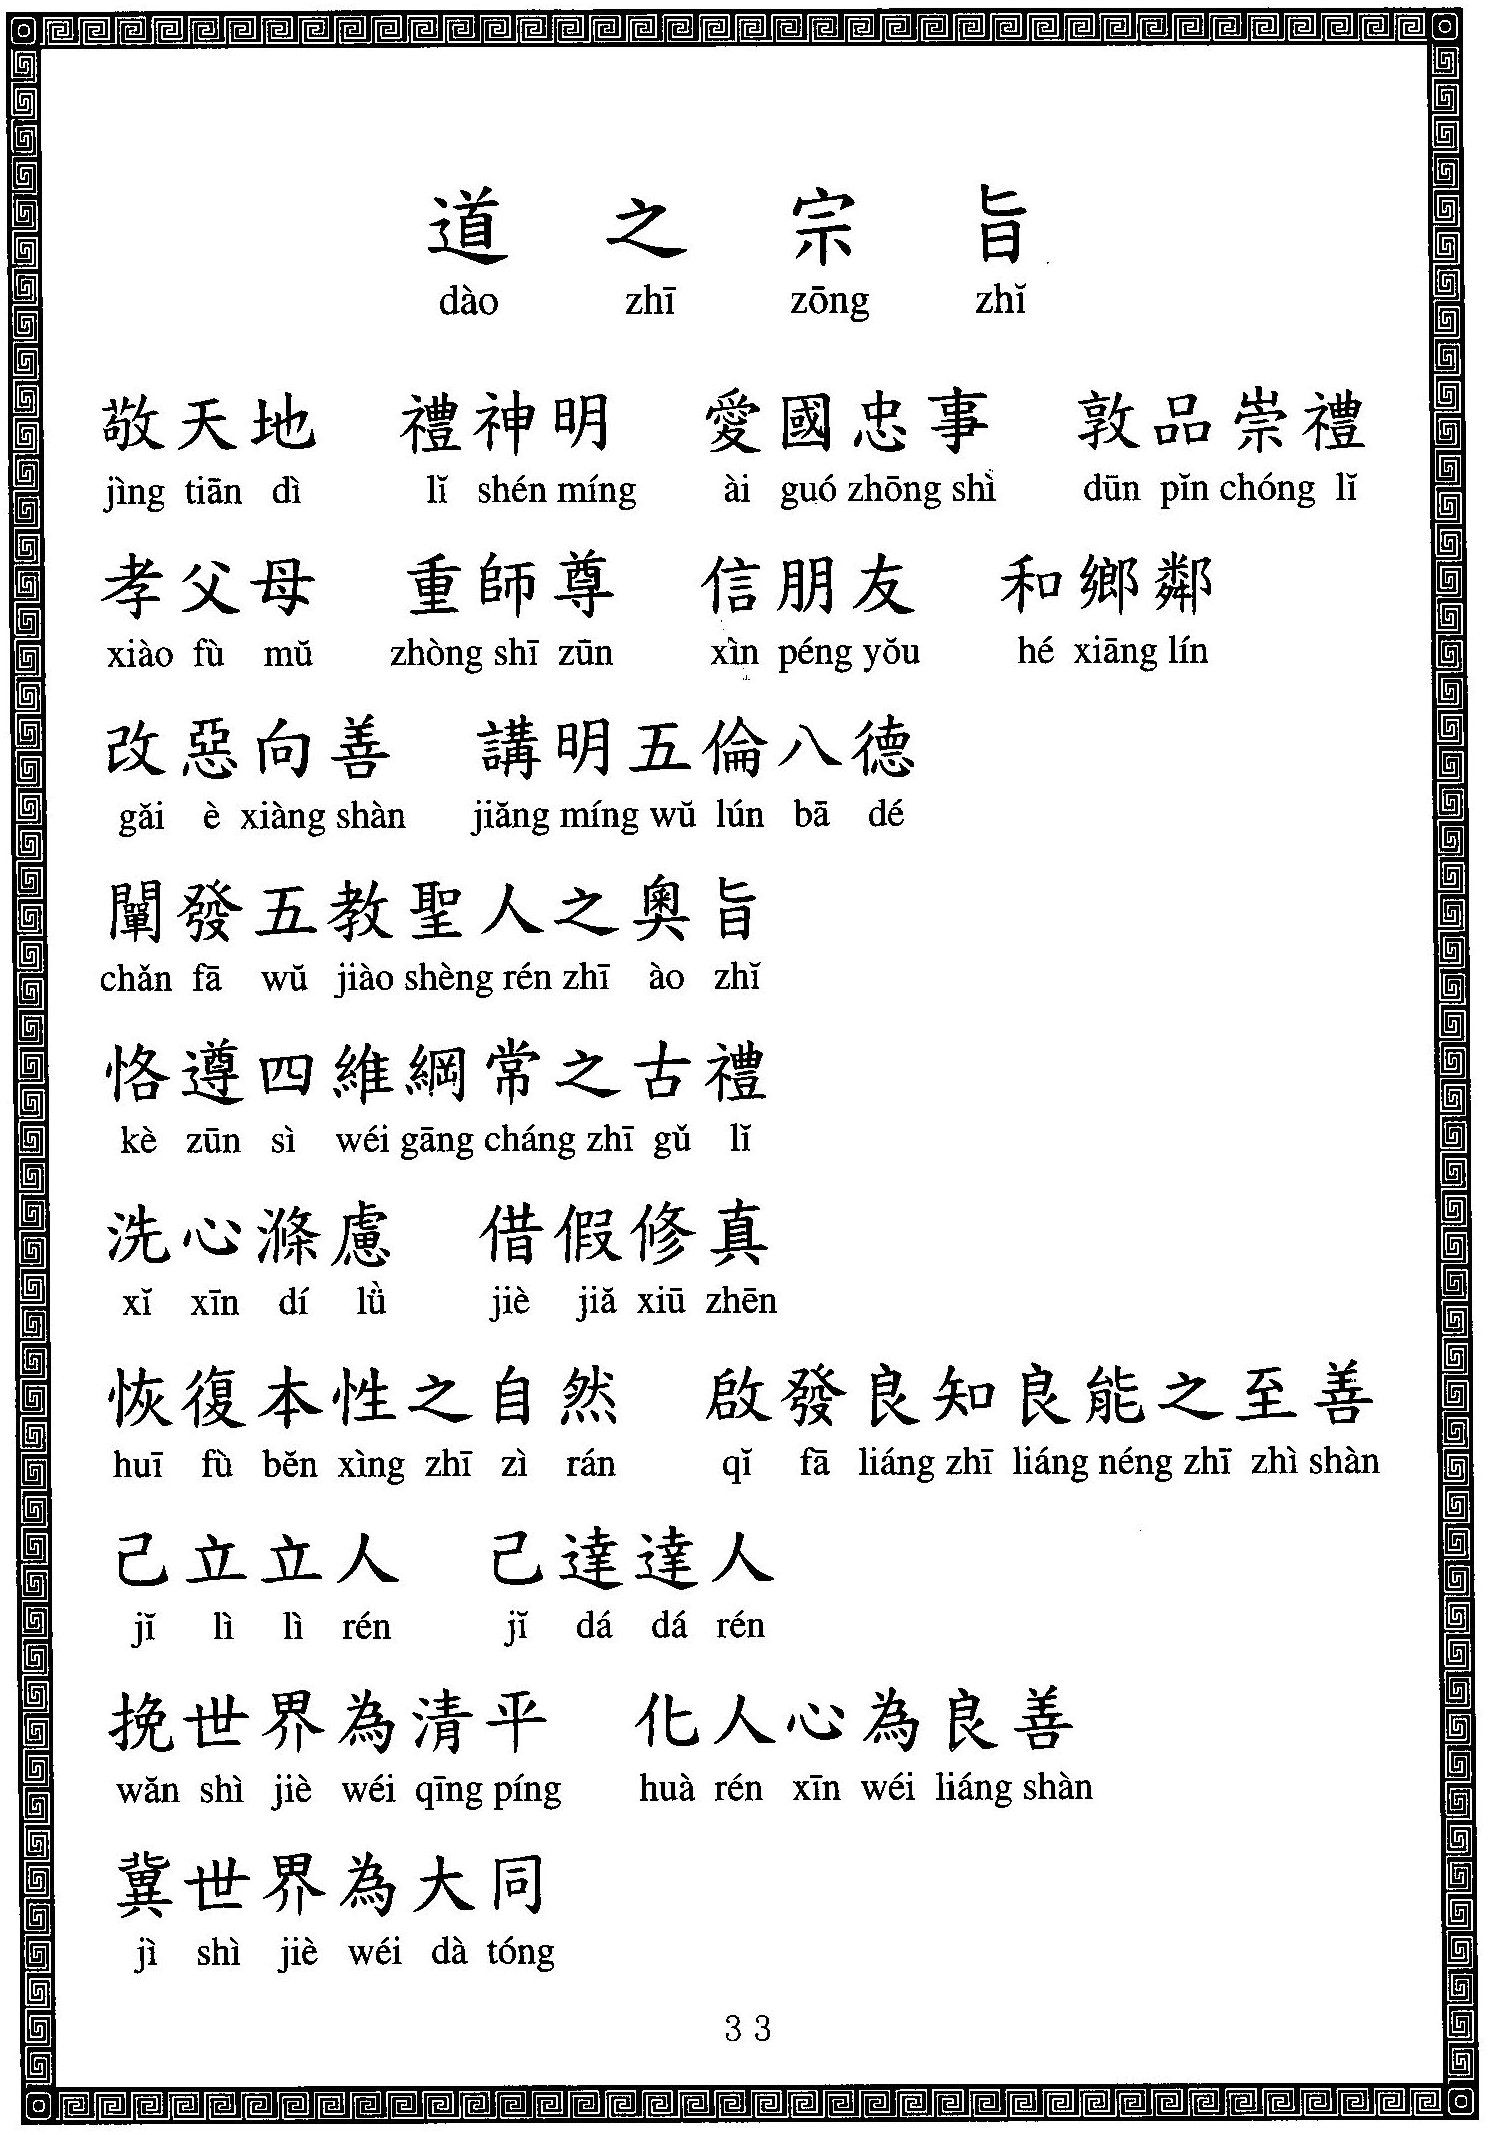 道之宗旨
dào zhī zōng zhǐ
敬天地 禮神明 愛國忠事 敦品崇禮
jìng tiān dì lǐ shén míng ài guó zhōng shì dūn pǐn chóng lǐ
孝父母 重師尊 信朋友 和鄉鄰
xiào fù mǔ zhòng shī zūn xìn péng yǒu hé xiāng lín
改惡向善 講明五倫八德
gǎi è xiàng shàn jiǎng míng wǔ lún bā dé
闡發五教聖人之奧旨
chǎn fā wǔ jiào shèng rén zhī ào zhǐ
恪遵四維綱常之古禮
kè zūn sì wéi gāng cháng zhī gǔ lǐ
洗心滌慮 借假修真
xǐ xīn dí lǜ jiè jiǎ xiū zhēn
恢復本性之自然 啟發良知良能之至善
huī fù běn xìng zhī zì rán qǐ fā liáng zhī liáng néng zhī zhì shàn
己立立人 己達達人
jǐ lì lì rén jǐ dá dá rén
挽世界為清平 化人心為良善
wǎn shì jiè wéi qīng píng huà rén xīn wéi liáng shàn
冀世界為大同
jì shì jiè wéi dà tóng
33